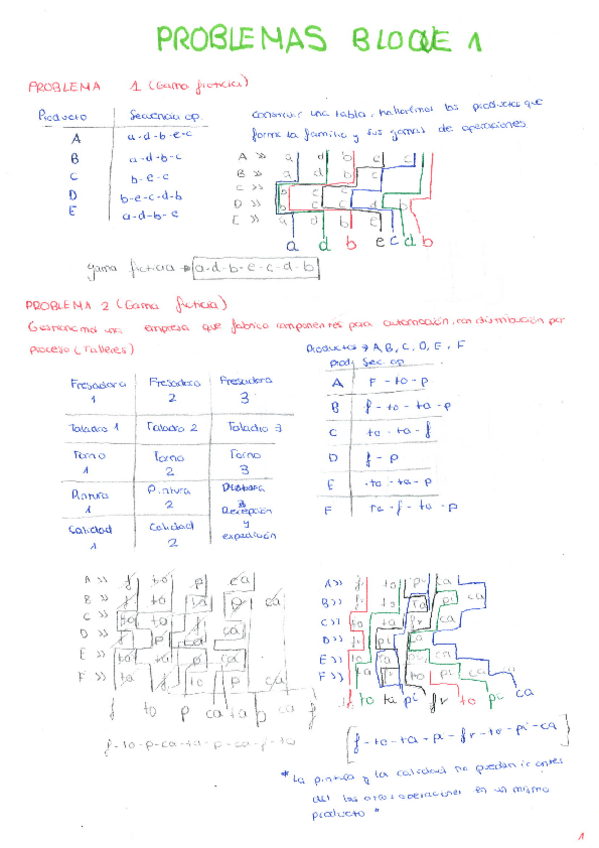 PROBLEMAS BLOQUE 1
PROBLEMA 1 (Gama ficticia)
Producto Secuencia op.
A a-d-b-e-c
B a-d-b-c
C b-e-c
D b-e-c-d-b
E a-d-b-e
construir una tabla, hallaremos los productos que
forme la familia y sus gamas de operaciones
A >> a d b e c
B >> a d b c
C >> b e c
D >> b e c d b
E >> a d b e
a d b e c d b
gama ficticia → a-d-b-e-c-d-b
PROBLEMA 2 (Gama ficticia)
Gestionamos una empresa que fabrica componentes para automoción, con distribución por
proceso (Talleres)
Productos → A, B, C, D, E, F
Prod. Sec. op
A F-to-p
B f-to-ta-p
C to-ta-f
D f-p
E to-ta-p
F ta-f-to-p
Fresadora 1 Fresadora 2 Fresadora 3
Taladro 1 Taladro 2 Taladro 3
Torno 1 Torno 2 Torno 3
Pintura 1 Pintura 2 Pintura 3
Calidad 1 Calidad 2 Recepción y expedición
A >> f to p ca
B >> f to ta p ca
C >> to ta f ca
D >> f p ca
E >> to ta p ca
F >> ta f to p ca
f to p ca ta p ca f
f-to-p-ca-ta-p-ca-f-to
A >> f to pi ca
B >> f to ta pi ca
C >> to ta fr ca
D >> f pi ca
E >> to ta pi ca
F >> ta fr to pi ca
f to ta pi fr to pi ca
[f-to-ta-pi-fr-to-pi-ca]
* La pintura y la calidad no pueden ir antes
de las otras operaciones en un mismo
producto *
1